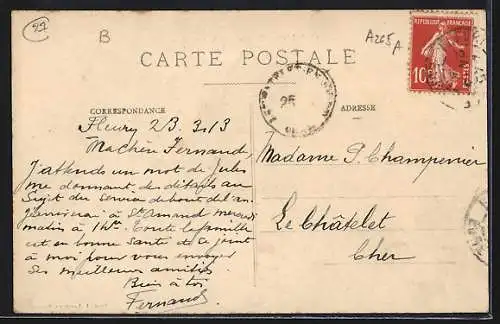 22
B
A265A
CARTE POSTALE
REPUBLIQUE FRANÇAISE
10
CORRESPONDANCE
ADRESSE
25
Fleury 2 B. 3.13
Ma chère Fernande,
J'attends un mot de Jules
me donnant des détails au
Sujet du service du bout de l'an
J'arriverai à St Amand mercredi
matin à 1h. Toute la famille
est en bonne santé se joint
à moi pour vous envoyer
Ses meilleures amitiés
Bien à toi
Fernand
Madame P. Champenier
Le Châtelet
Cher